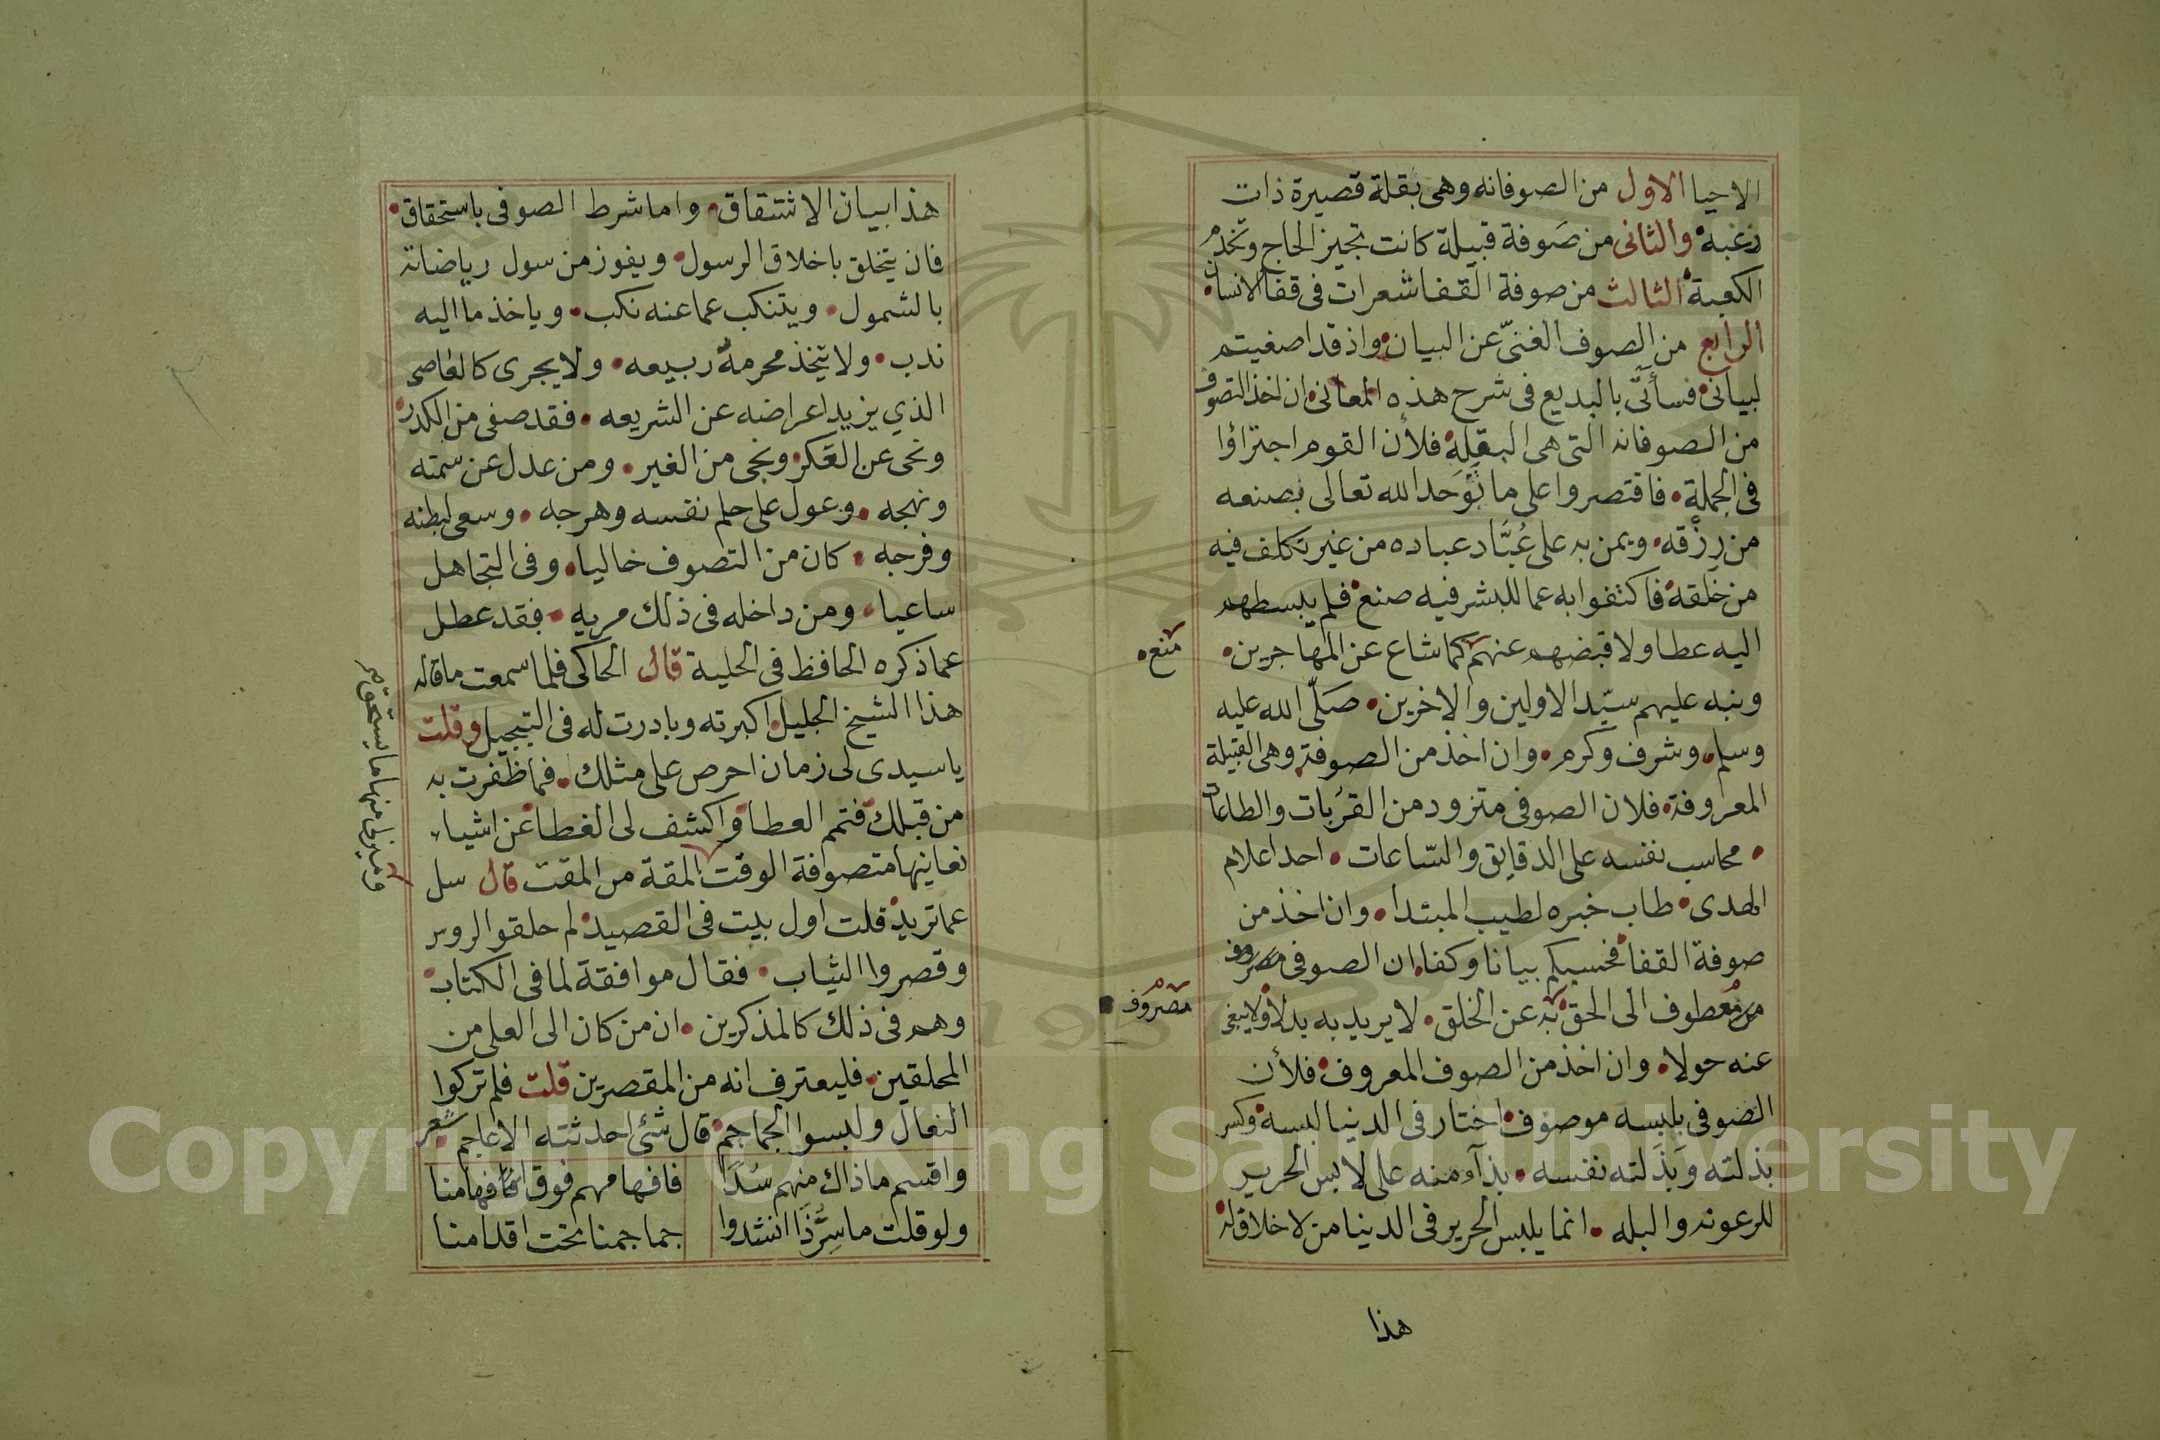 الاحيا الاول من الصوفانه وهى بقلة قصيرة ذات
زغبه والثانى من صَوفة قبيلة كانت تجيز الحاج وتخدم
الكعبة الثالث من صوفة القفا شعرات فى قفا الانسان
الرابع من الصوف الغنىّ عن البيان واذ قد اصغيتم
لبيانى فسأتى بالبديع فى شرح هذه المعانى ان اخذ التصوف
من الصوفانه التى هى البقلة فلأن القوم اجتزاؤا
فى الجملة فاقتصروا على ما تَوَحد الله تعالى بصنعه
من رزْقه ويمن به على عُبَّاد عباده من غير تكلف فيه
من خَلقة فاكتفوا به عما للبشر فيه صنع فلم يبسطهم
اليه عطا ولا قبضهم عنهم كما شاع عن المهاجرين
منع
ونبه عليهم سيّد الاولين والاخرين صَلّى الله عليه
وسلم وشرف وكرم وان اخذ من الصوفة وهى القبيلة
المعروفة فلان الصوفى متزود من القرَبات والطاعات
محاسب نفسه على الدقايق والسّاعات احد اعلام
الهدى طاب خبره لطيب المبتدا وان اخذ من
صوفة القفا فحسبكم بيانا وكفا ان الصوفى مصروف
مصروف
معطوف الى الحق به عن الخلق لا يريد به بدلا ولا يبغى
عنه حولا وان اخذ من الصوف المعروف فلأن
الصوفى بلبسه موصوف اختار فى الدنيا لبسه وكسر
بذلته وَبَذلته نفسه بذآء منه على لابس الحرير
للرعونه والبله انما يلبس الحرير فى الدنيا من لا خلاق له
هذا
هذا بيان الاشتقاق واما شرط الصوفى باستحقاق
فان يتخلق باخلاق الرسول ويفوز من سول رياضاته
بالشمول ويتنكب عما عنه نكب وياخذ ما اليه
ندب ولا يتخذ محرمهُ ربيعه ولا يجرى كالعاصى
الذي يزيد اعراضه عن الشريعه فقد صفى من الكدر
ونحى عن العَكر ونجى من الغير ومن عدل عن سمته
ونهجه وعول على حلم نفسه وهرجه وسعى لبطنه
وفرجه كان من التصوف خاليا وفى التجاهل
ساعيا ومن داخله فى ذلك مريه فقد عطل
عما ذكره الحافظ فى الحلية قال الحاكى فلما سمعت ما قاله
هذا الشيخ الجليل اكبرته وبادرت له فى التبجيل وقلت
يا سيدى لى زمان احرص على مثلك فما ظفرت به
من قبلك فتمم العطا واكشف لى الغطا عن اشياء
نعاينها متصوفة الوقت المقة من المقت قال سل
وتميزلى منها ما يستحق
عما تريد قلت اول بيت فى القصيد لم حلقو الروس
وقصروا الثياب فقال موافقة لما فى الكتاب
وهم فى ذلك كالمذكرين ان من كان الى العلى من
المحلقين فليعترف انه من المقصرين قلت فلم تركوا
النعال ولبسوا الجماجم قال شئ احدثته الاعاجم شعر
واقسم ما ذاك منهم سُدَا فافهامهم فوق افهامنا
ولو قلت ما سِرُّ ذَا انشدوا جماجمنا تحت اقدامنا
Copyright © King Saud University